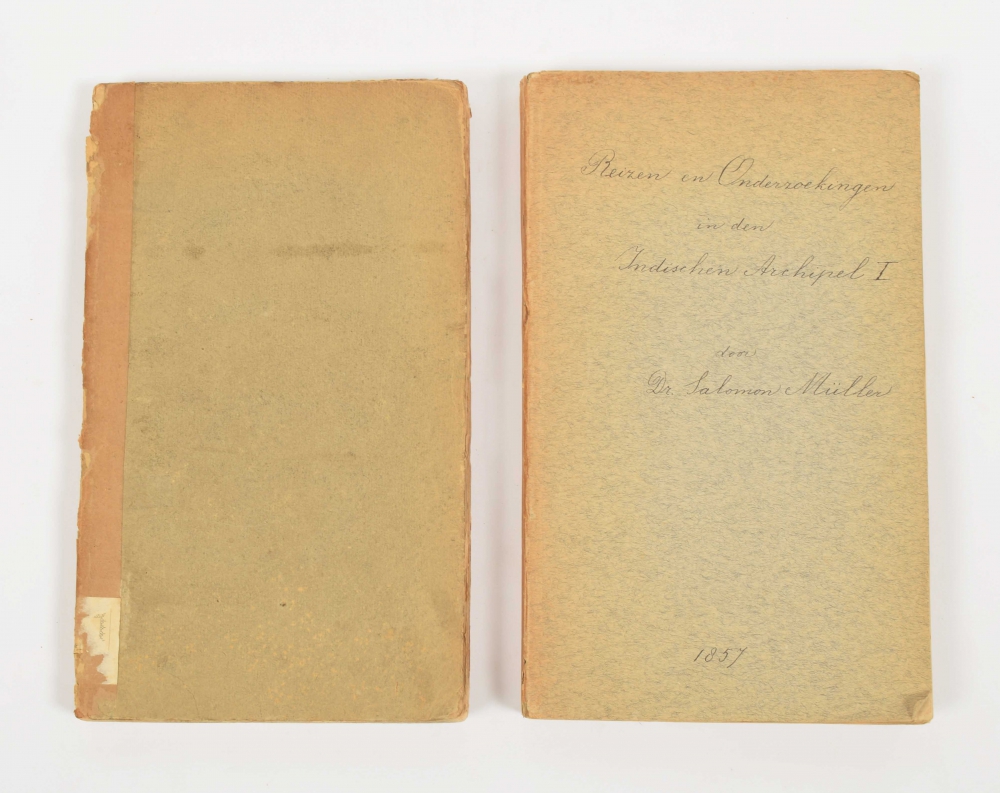 Reizen en Onderzoekingen
in den
Indischen Archipel I
door
Dr. Salomon Müller
1857